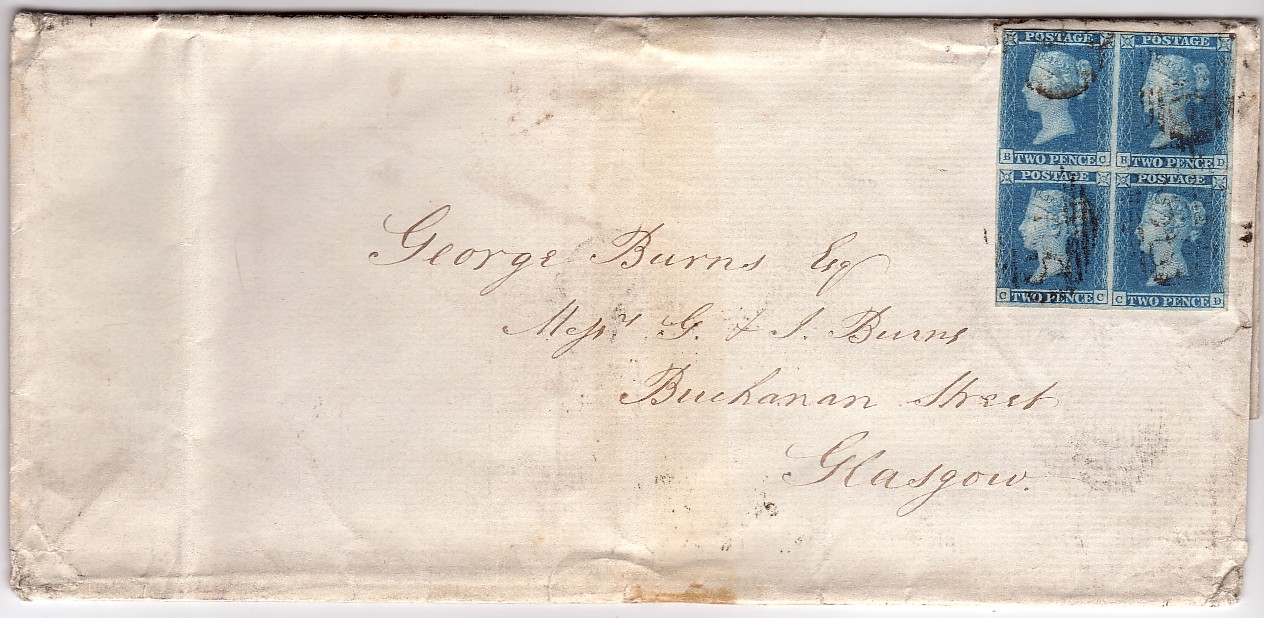 POSTAGE POSTAGE
B TWO PENCE C B TWO PENCE D
POSTAGE POSTAGE
C TWO PENCE C C TWO PENCE D
George Burns Esq
Messrs G. & J. Burns
Buchanan Street
Glasgow.